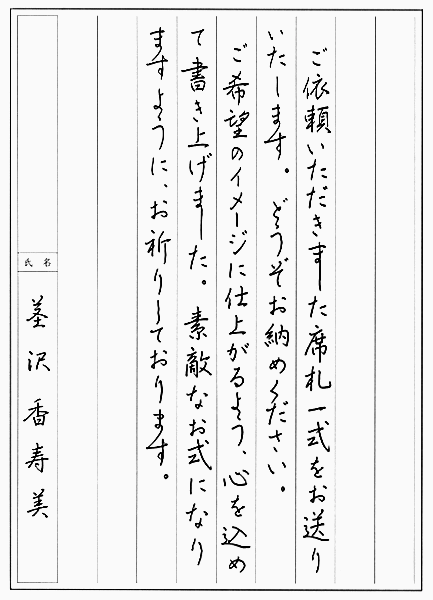 ご依頼いただきました席札一式をお送り
いたします。どうぞお納めください。
ご希望のイメージに仕上がるよう、心を込め
て書き上げました。素敵なお式になり
ますように、お祈りしております。
氏名
沢 香寿美